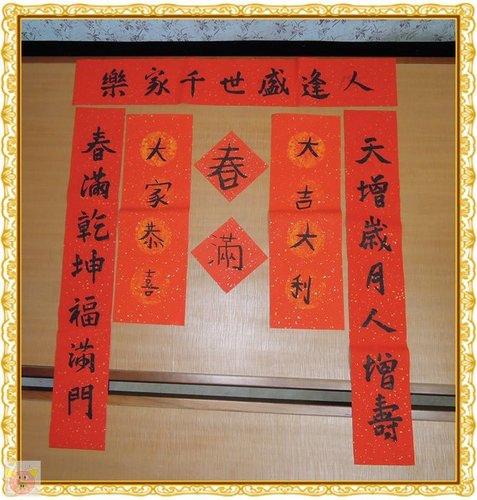 人逢盛世千家樂
天增歲月人增壽
大吉大利
春
滿
大家恭喜
春滿乾坤福滿門